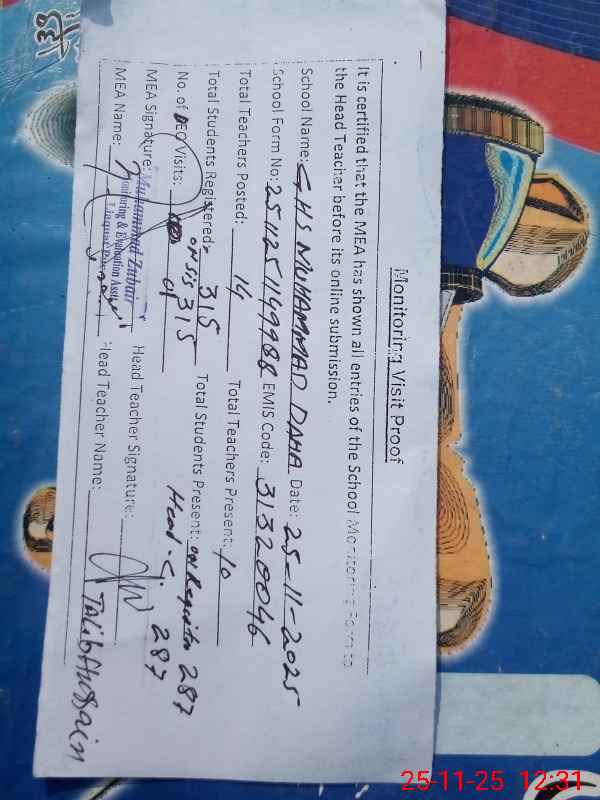 Monitoring Visit Proof
It is certified that the MEA has shown all entries of the School Monitoring Form to
the Head Teacher before its online submission.
School Name: GHS MUHAMMAD DAHA Date: 25-11-2025
School Form No: 2511251149988 EMIS Code: 31320046
Total Teachers Posted: 14 Total Teachers Present: 10
Total Students Registered: 315 Total Students Present: on Register 287
on SIS 315 Head-C. 287
No. of DEO Visits: 01
MEA Signature: Head Teacher Signature:
Muhammad Zubair
Monitoring & Evaluation Asstt
MEA Name: Head Teacher Name: Talib Hussain
25-11-25 12:31